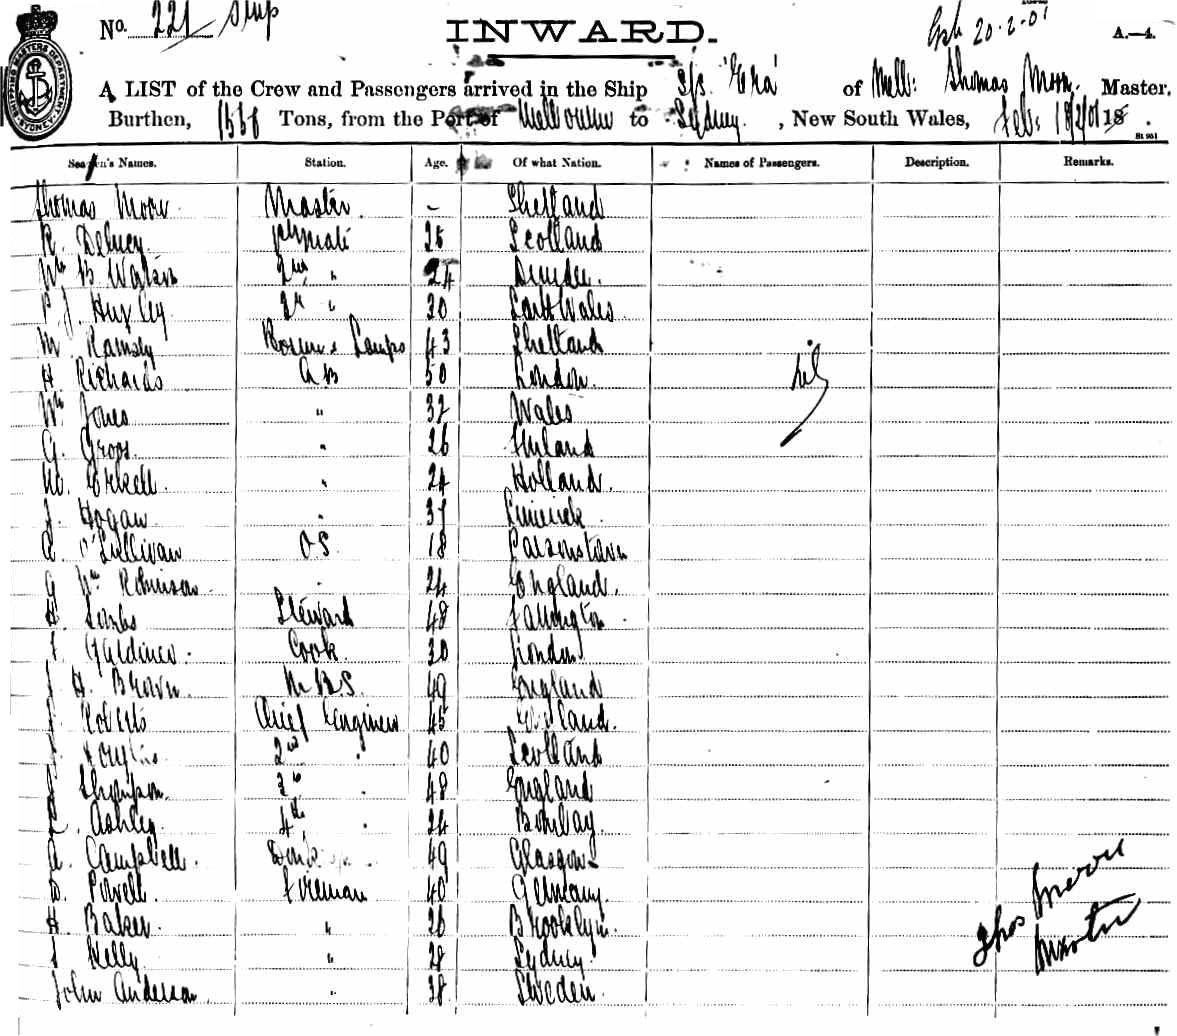 No. 221 Ship
INWARD.
20-2-01
A.—4.
SHIPPING MASTERS DEPARTMENT SYDNEY
A LIST of the Crew and Passengers arrived in the Ship S/s 'Era' of Melb: Thomas Moore. Master,
Burthen, Tons, from the Port of Melbourne to Sydney. , New South Wales, Feb: 18/2/01 18 .
St 951
Seamen's Names. Station. Age. Of what Nation. Names of Passengers. Description. Remarks.
Thomas Moore Master. - Shetland
R. Delucy 25 Scotland
Wm B Watson 2nd " 24 Dundee.
P. J. Huxley 3rd " 30 Wales
M Ramsey Bosun & Lamps 43 Shetland
nil
H. Richards AB 50 London.
Wm Jones " 32 Wales
G. Groos. " 26 Finland
W. " 24 Holland.
J. Hogan " Limerick
O'Sullivan OS. 18 Parsonstown
G Wm Robinson 24 England.
H. Steward 48
F. Gardiner. Cook 30 London
J H. Brown. M.B.S. 49 England
J. Roberts Chief Engineer 45
2nd " 40 Scotland
J Thompson. 3rd 48 England
L. Ashley 4th " 24 Bombay.
A. Campbell. 49 Glasgow
D. Powell. Fireman 40 Germany.
H. Baker. " 26 Brooklyn.
J Kelly " 28 Sydney
John Anderson " 38. Sweden.
Thos Moore
Master